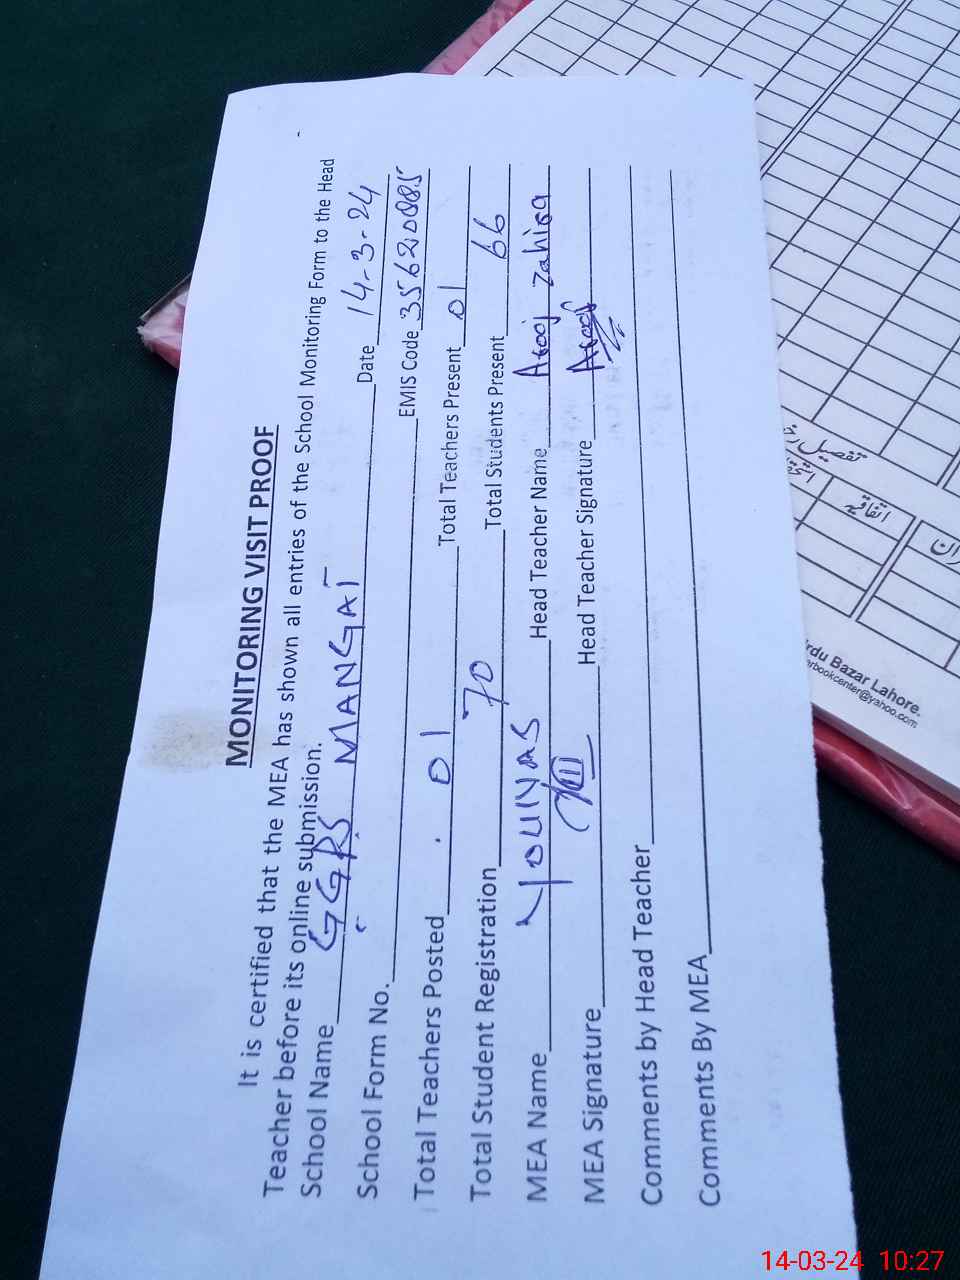 MONITORING VISIT PROOF
It is certified that the MEA has shown all entries of the School Monitoring Form to the Head
Teacher before its online submission.
School Name GGPS MANGAT Date 14-3-24
School Form No. EMIS Code 35620085
Total Teachers Posted 01 Total Teachers Present 01
Total Student Registration 70 Total Students Present 66
MEA Name YOUNAS Head Teacher Name Arooj Zahira
MEA Signature Head Teacher Signature Arooj
Comments by Head Teacher
Comments By MEA
تفصیل
اتفاقیہ
rdu Bazar Lahore.
arbookcenter@yahoo.com
14-03-24 10:27